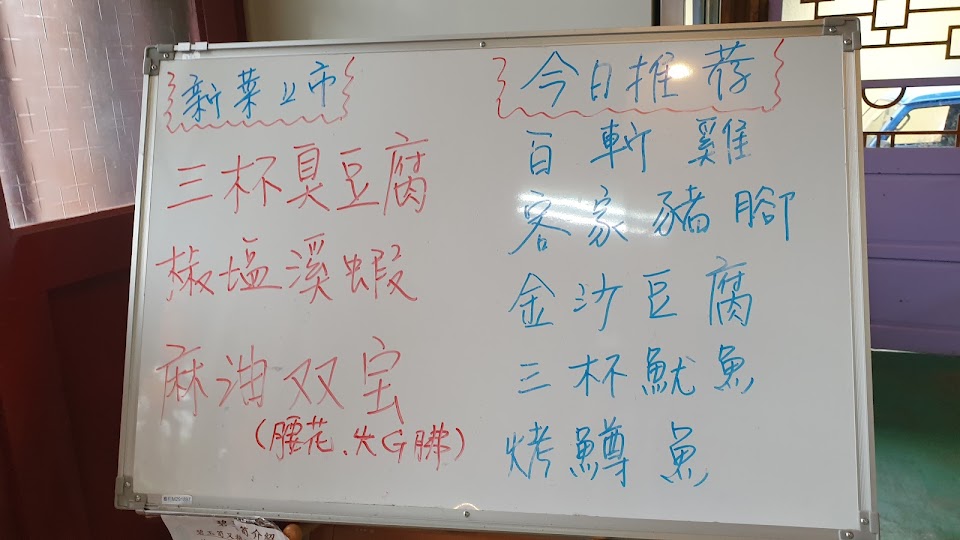 新菜上市
三杯臭豆腐
椒塩溪蝦
麻油双宝
(腰花、G胇)
今日推荐
百斬雞
客家豬腳
金沙豆腐
三杯魷魚
烤鱒魚
介紹